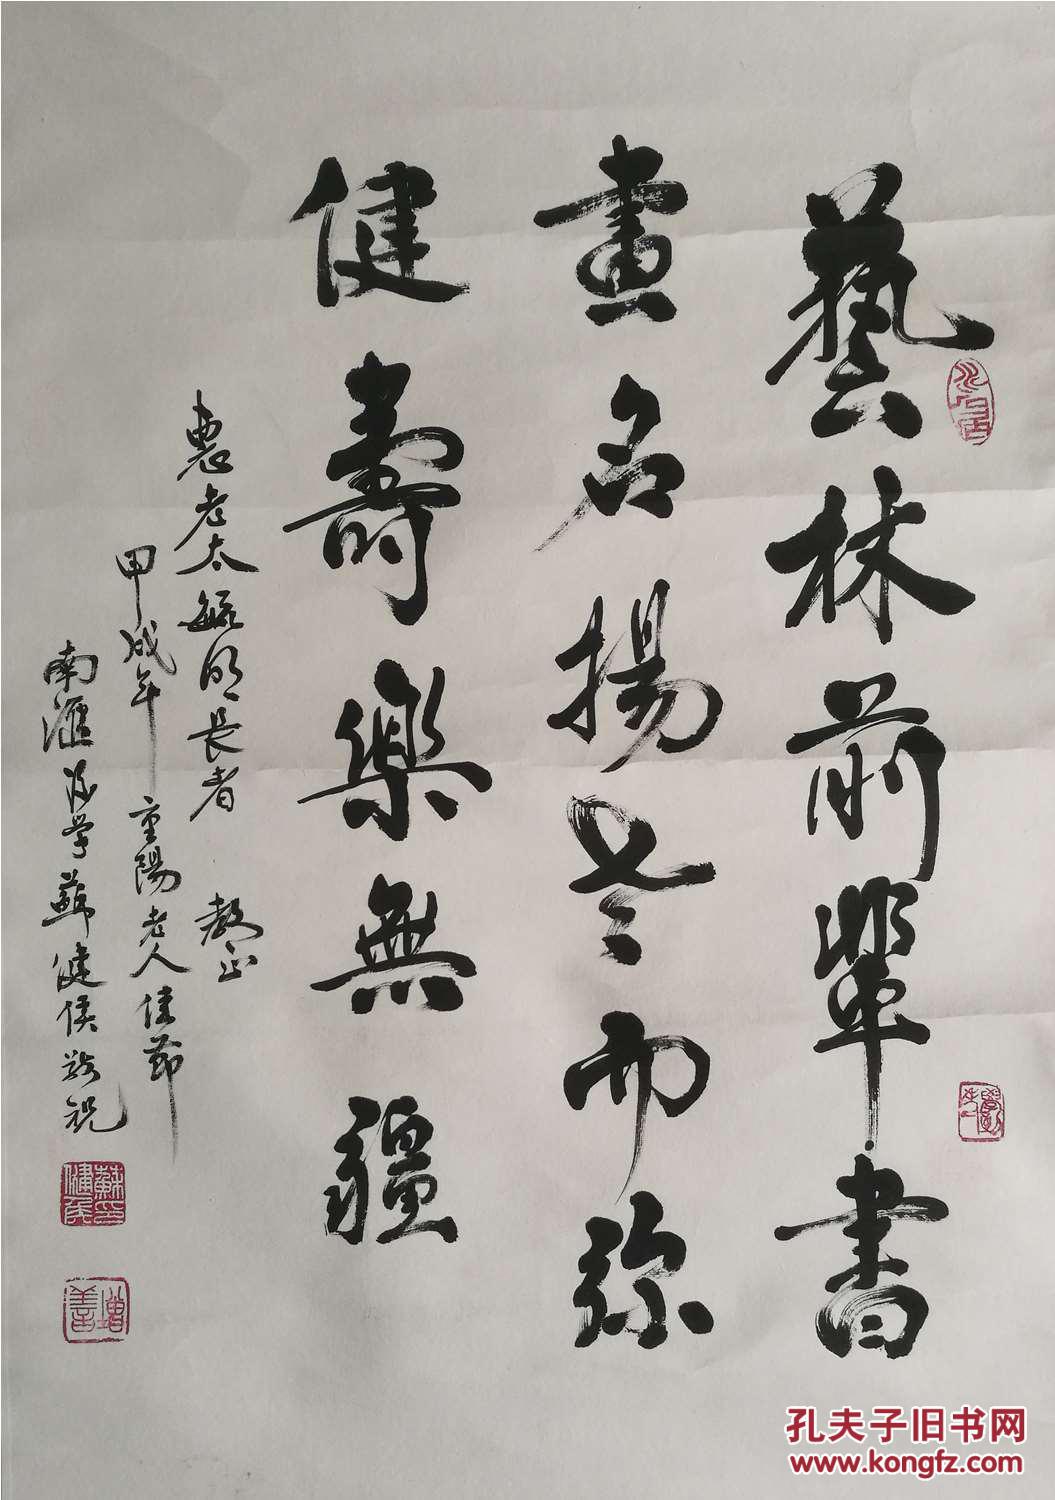 藝林前輩書
畫名揚老而弥
健壽樂無疆
農老太毓明長者 教正
甲戌年重陽老人佳節
南滙後學蘇健侯敬祝
蘇健侯印
增善
孔夫子旧书网
www.kongfz.com